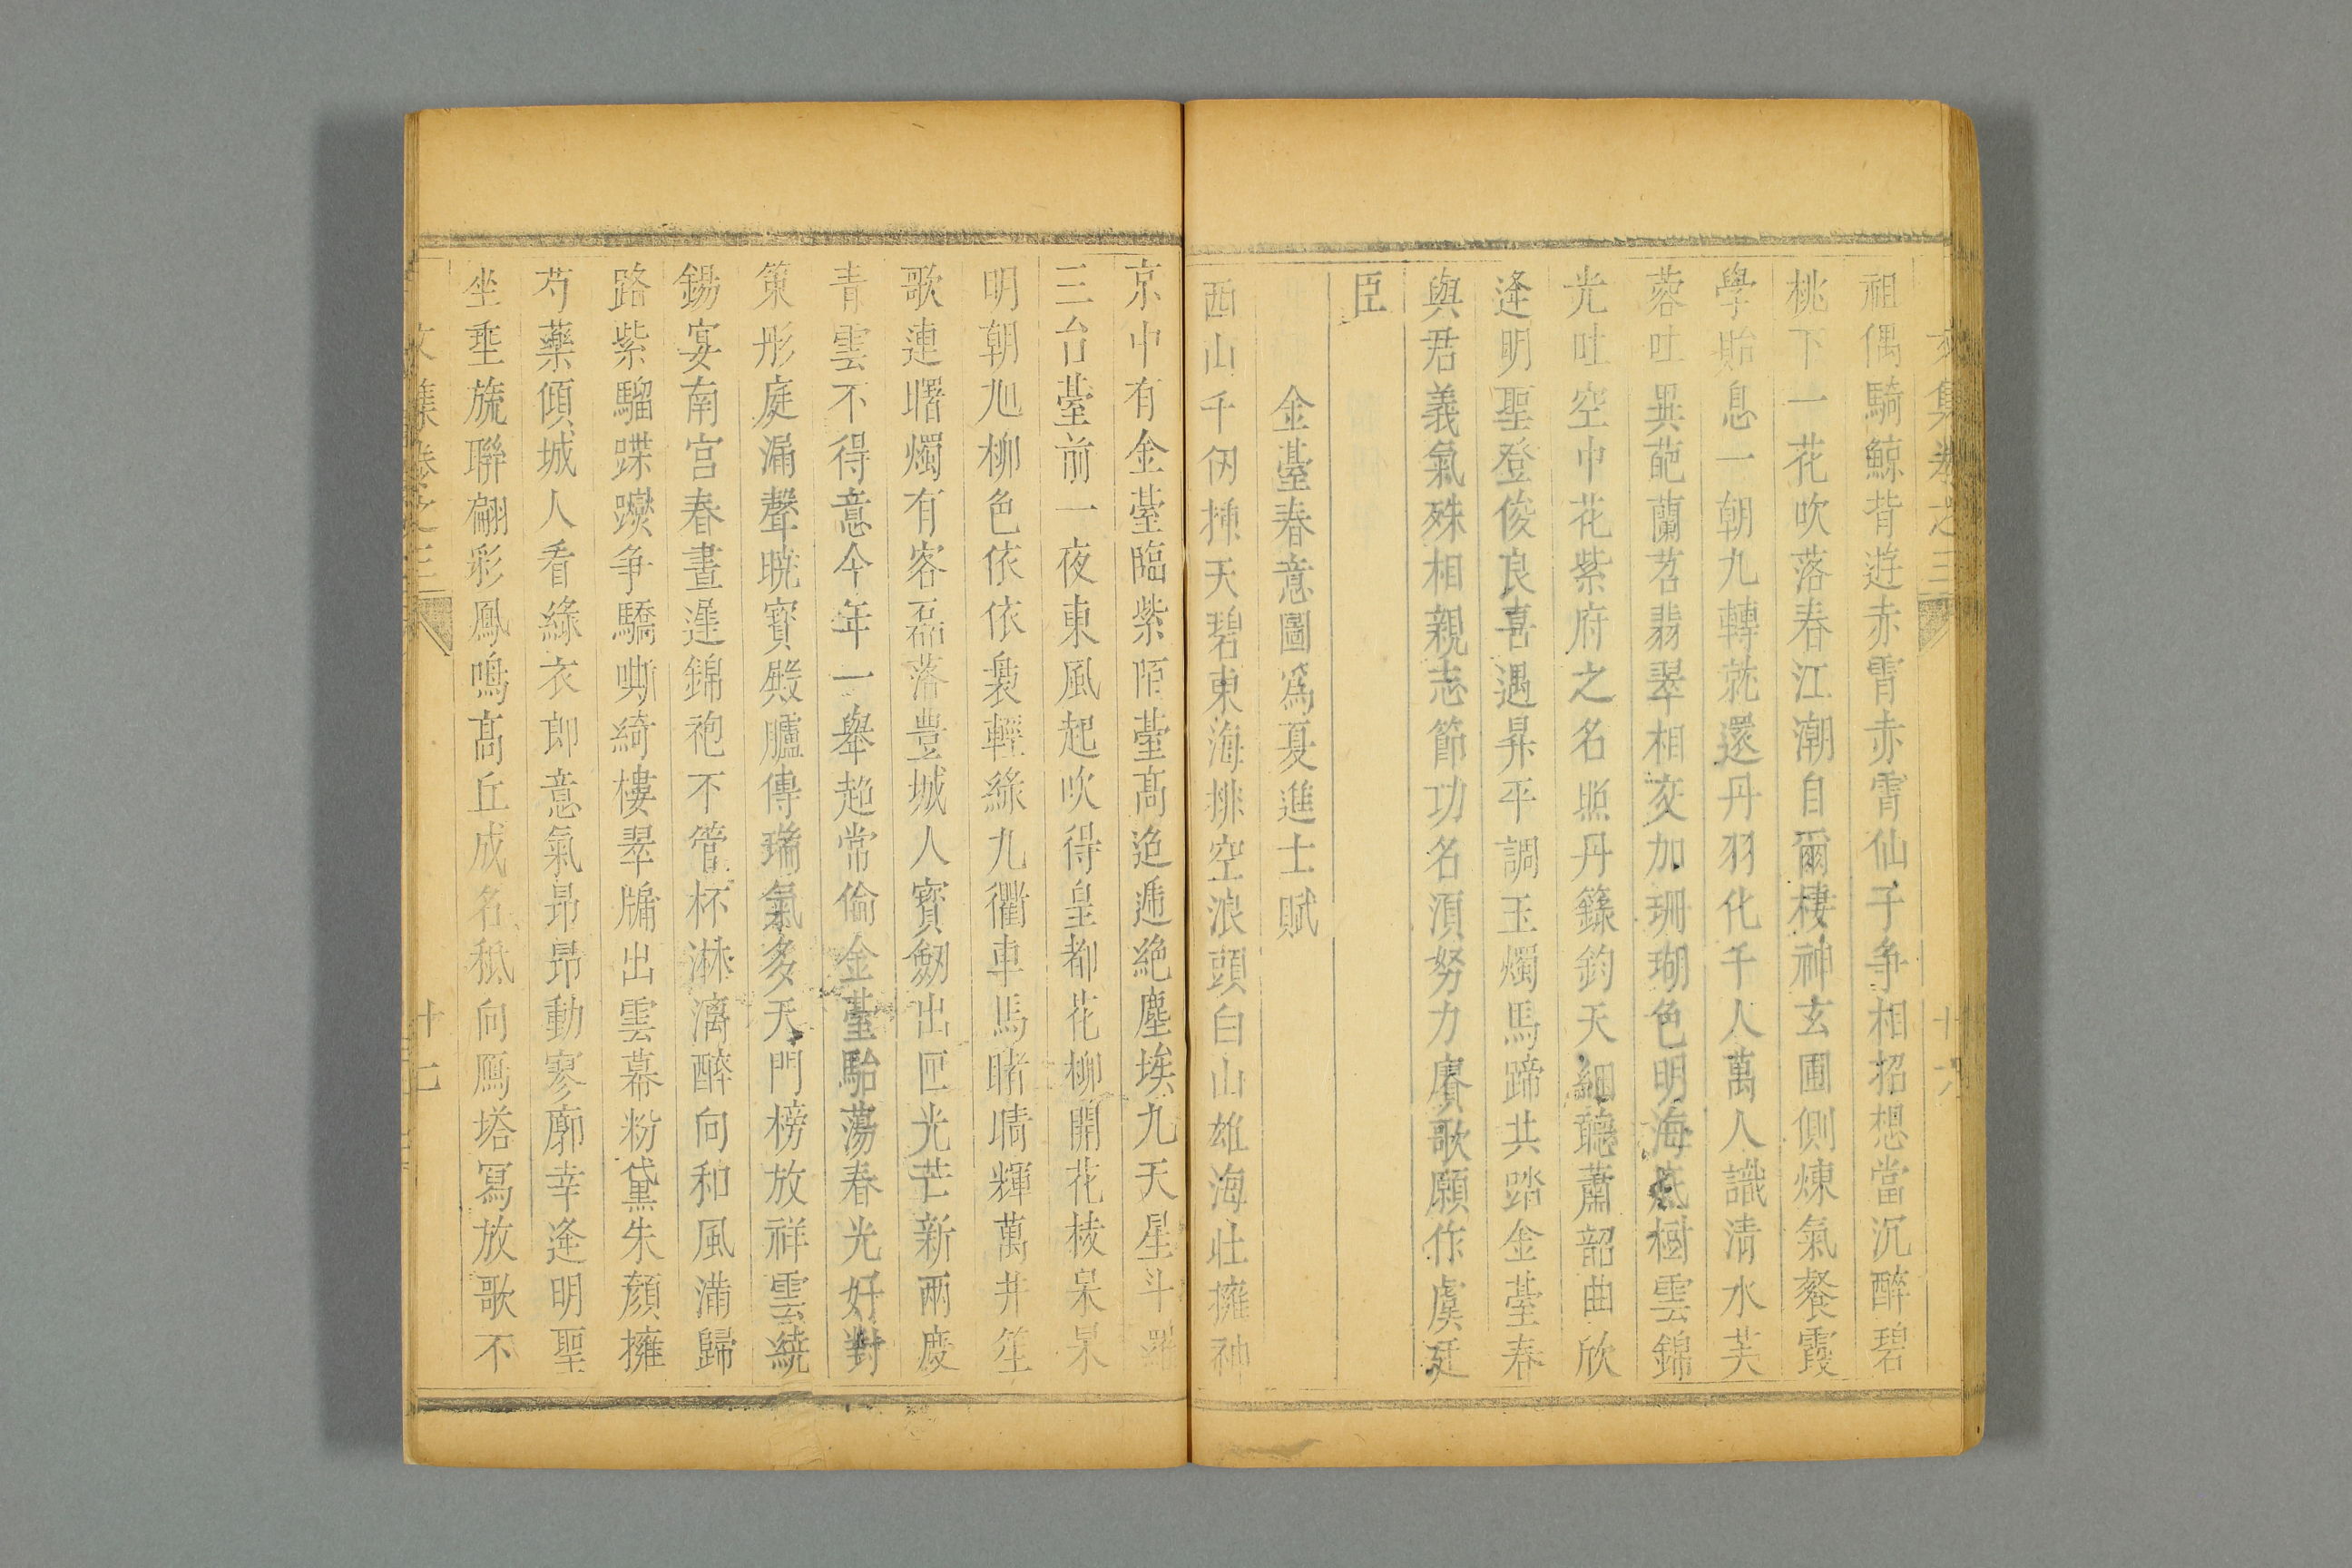 文集卷之三
十六
祖偶騎鯨背遊赤霄赤霄仙子爭相招想當沉醉碧
桃下一花吹落春江潮自爾棲神玄圃側煉氣餐霞
學貽息一朝九轉就還丹羽化千人萬人識清水芙
蓉吐異葩蘭苕翡翠相交加珊瑚色明海底樹雲錦
光吐空中花紫府之名照丹籙鈞天細聽蕭韶曲欣
逢明聖登俊良喜遇昇平調玉燭馬蹄共踏金臺春
與君義氣殊相親志節功名須努力賡歌願作虞廷
臣
金臺春意圖為夏進士賦
西山千仞揷天碧東海排空浪頭白山雄海壯擁神
京中有金臺臨紫陌臺高迢遞絕塵埃九天星斗羅
三台臺前一夜東風起吹得皇都花柳開花枝杲杲
明朝旭柳色依依裊輕綠九衢車馬賭晴輝萬井笙
歌連曙燭有客磊落豊城人寳劒出匣光芒新兩度
青雲不得意今年一舉超常倫金臺駘蕩春光好對
策彤庭漏聲曉寳殿臚傳瑞氣多天門榜放祥雲繞
錫宴南宮春晝遲錦袍不管杯淋漓醉向和風滿歸
路紫騮蹀躞爭驕嘶綺樓翠牖出雲幕粉黛朱顏擁
芍藥傾城人看綠衣郎意氣昻昻動寥廓幸逢明聖
坐垂旒聯翩彩鳳鳴髙丘成名秪向鴈塔寫放歌不
文集卷之三
十七